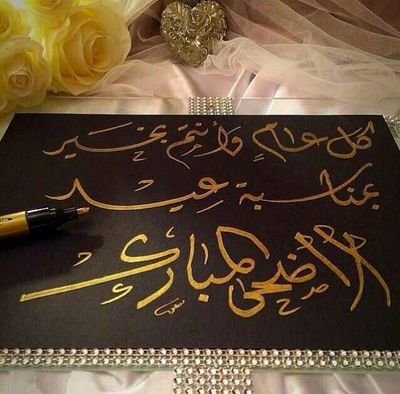 كل عام وأنتم بخير
بمناسبة عيد
الأضحى المبارك